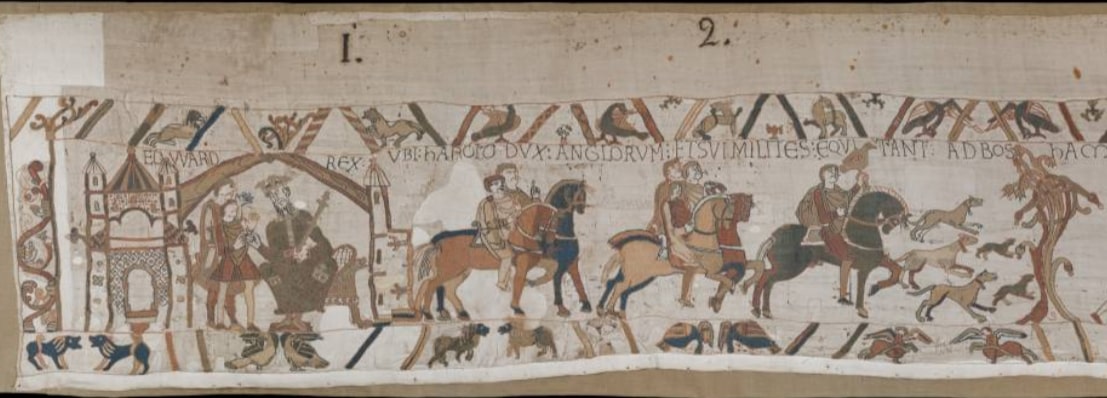 1.
2.
EDWARD REX: VBI: hAROLD DVX: ANGLORVM: ET SVI MILITES: EQVITANT: AD BOShAM